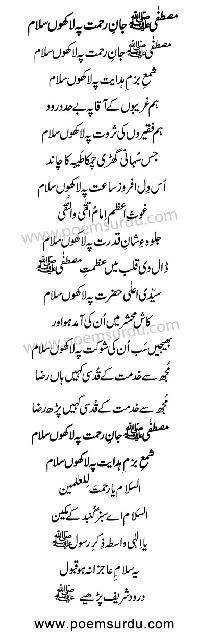 مصطفٰی ﷺ جانِ رحمت پہ لاکھوں سلام
مصطفٰی ﷺ جانِ رحمت پہ لاکھوں سلام
شمعِ بزمِ ہدایت پہ لاکھوں سلام
ہم غریبوں کے آقا پہ بے حد درود
ہم فقیروں کی ثروت پہ لاکھوں سلام
جس سُہانی گھڑی چمکا طیبہ کا چاند
اُس دل افروز ساعت پہ لاکھوں سلام
غوثِ اعظم امامُ التّقیٰ والنّقیٰ
جلوۂ شانِ قدرت پہ لاکھوں سلام
www.poemsurdu.com
ڈال دی قلب میں عظمتِ مصطفٰی ﷺ
سیّدی اعلیٰ حضرت پہ لاکھوں سلام
کاش محشر میں جب اُن کی آمد ہو اور
بھیجیں سب اُن کی شوکت پہ لاکھوں سلام
www.poemsurdu.com
مُجھ سے خدمت کے قُدسی کہیں ہاں رضا
مُجھ سے خدمت کے قُدسی کہیں پڑھ رضا
مصطفٰی ﷺ جانِ رحمت پہ لاکھوں سلام
شمعِ بزمِ ہدایت پہ لاکھوں سلام
السلام یا رحمت للعلمین
السلام اے سبز گنبد کے مکین
یا الٰہی واسطہ ذکرِ رسول ﷺ
یہ سلامِ عاجزانہ ہو قبول
درود شریف پڑھیے ﷺ
www.poemsurdu.com